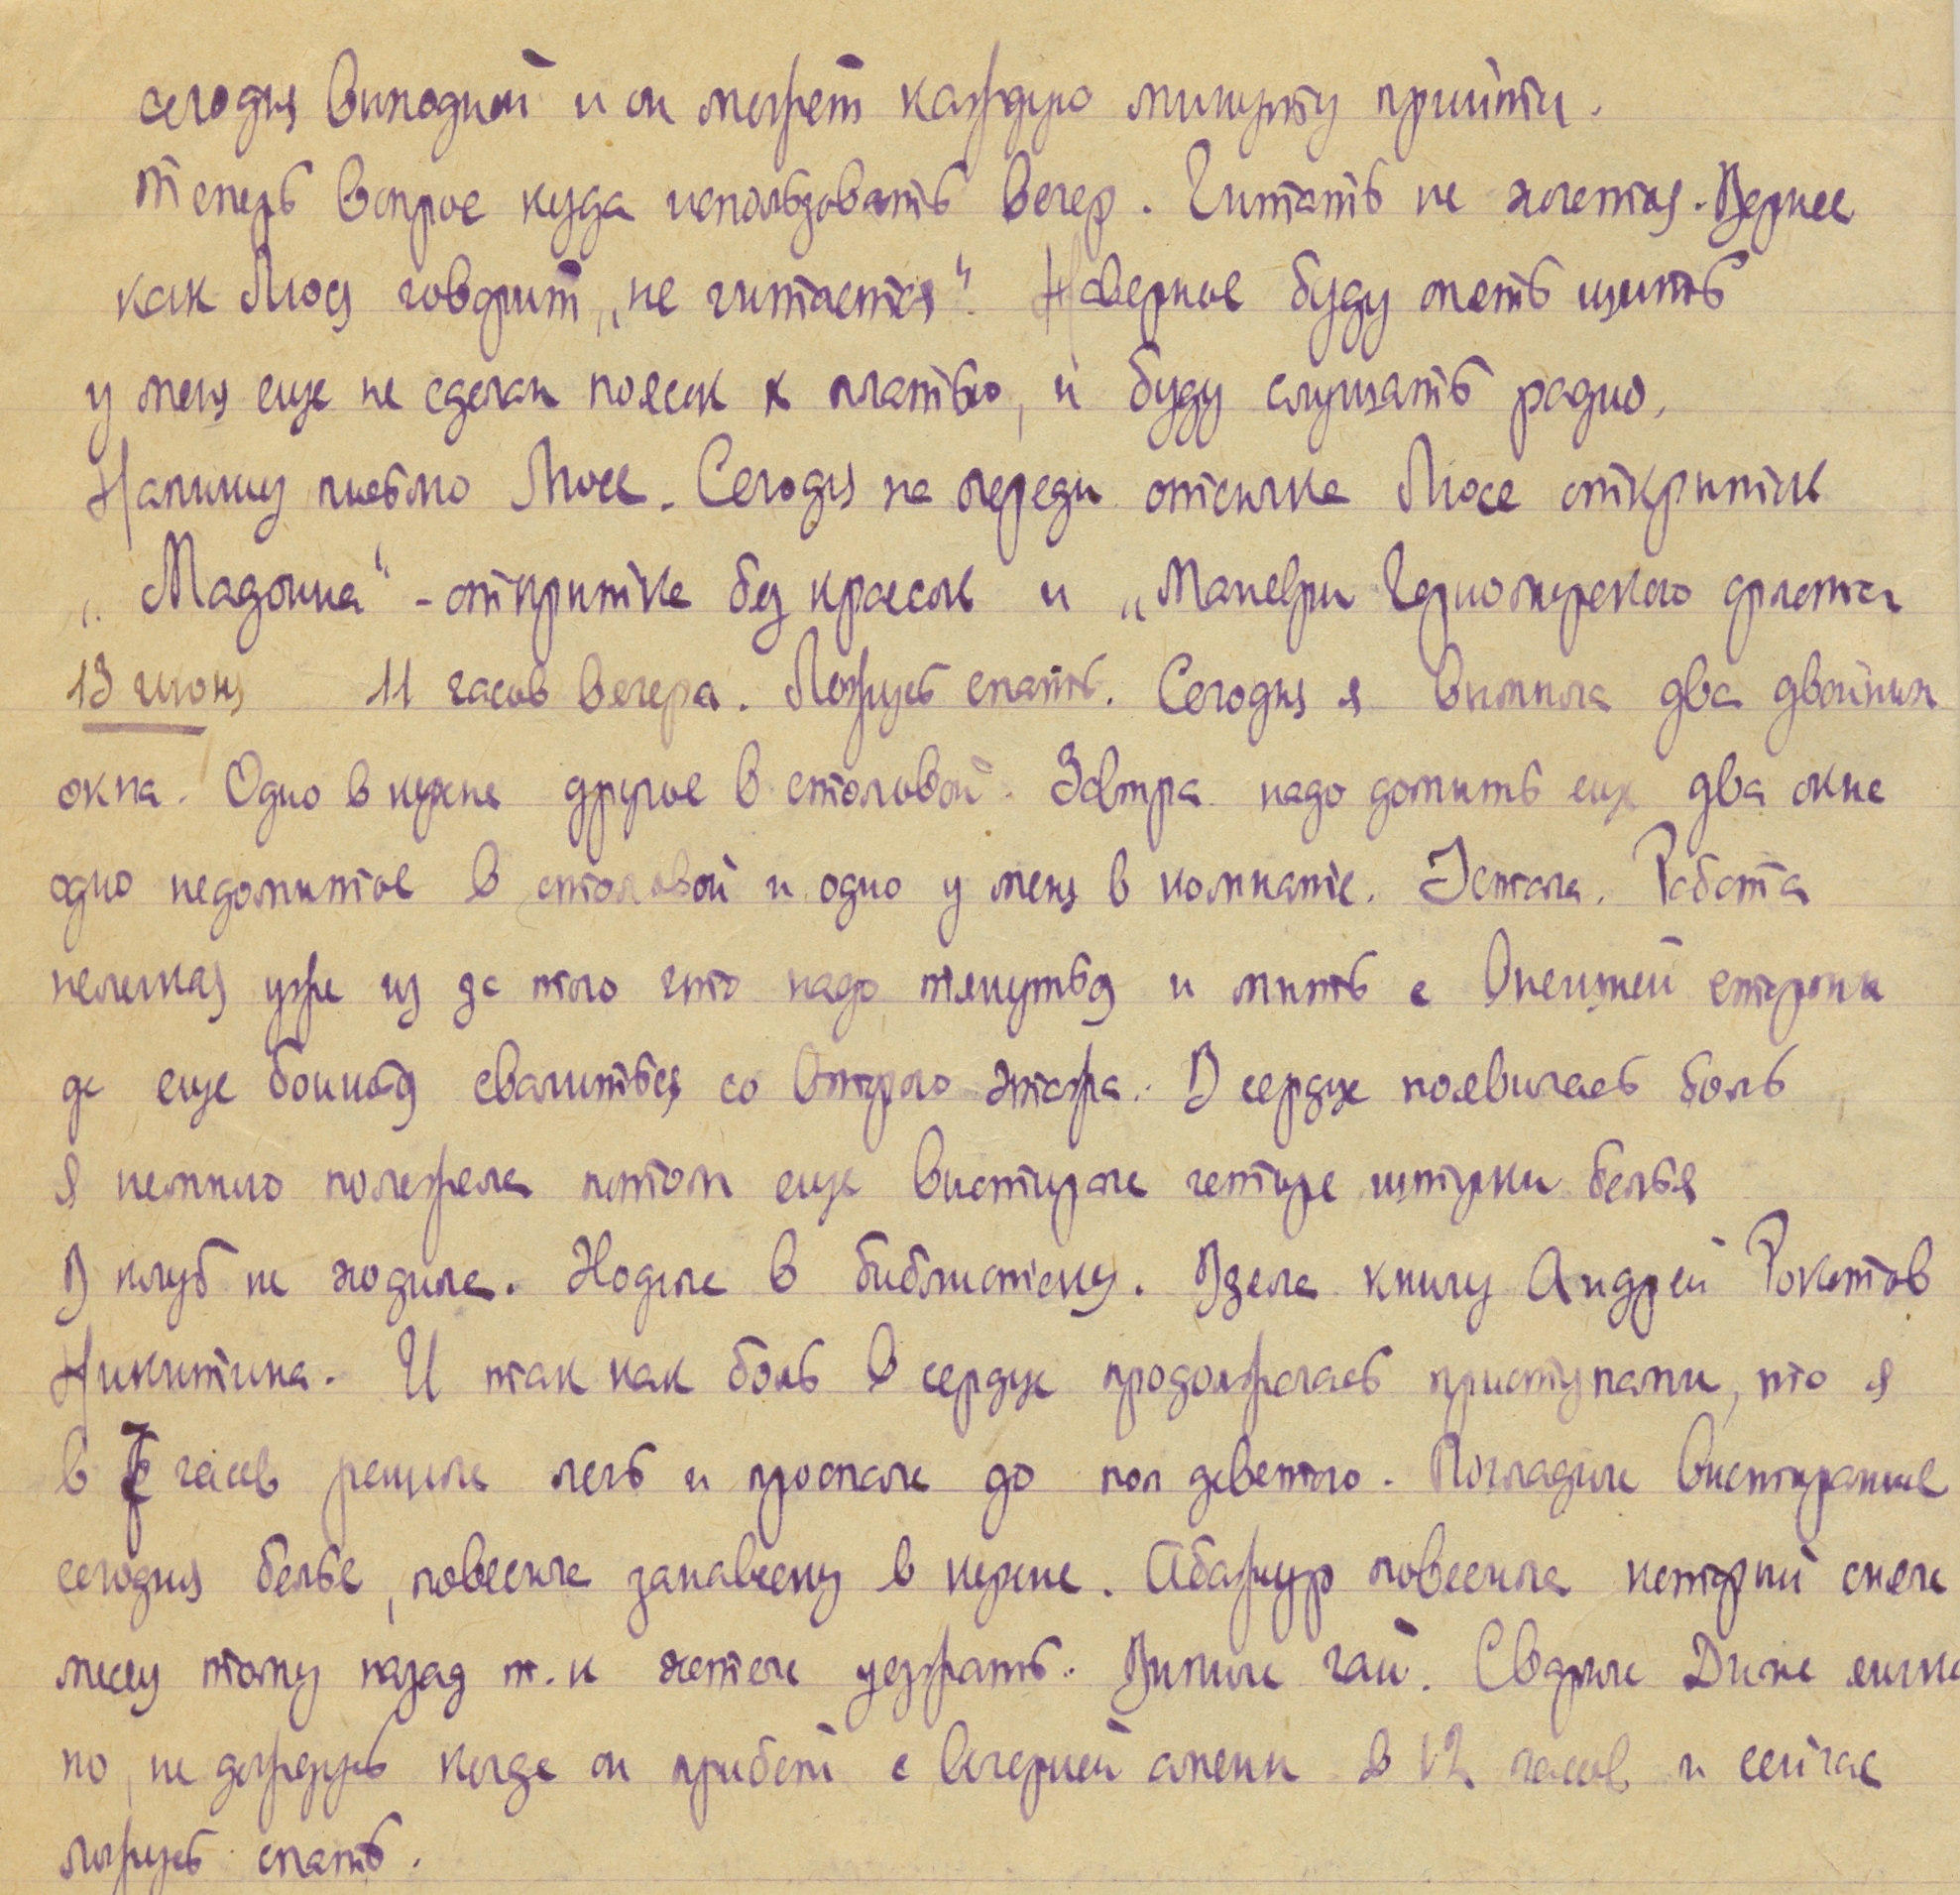 сегодня выходной и он может каждую минуту прийти.
Теперь вопрос куда использовать вечер. Читать не хочется. Вернее
как Люся говорит „не читается“. Наверное буду шить
у меня еще не сделан поясок к платью, и буду слушать радио.
Напишу письмо Люсе. Сегодня на очереди отсылка Люсе открыток
„Мадонна“ - открытка без красок и „Маневры Черноморского флота
13 июня 11 часов вечера. Ложусь спать. Сегодня я вымыла два двойных
окна. Одно в кухне другое в столовой. Завтра надо домыть еще два окна
одно недомытое в столовой и одно у меня в комнате. Устала. Работа
нелегкая уже из за того что надо тянуться и мыть с внешней стороны
да еще боишься свалиться со второго этажа. В сердце появилась боль
я немного полежала потом еще выстирала четыре штуки белья
В клуб не ходила. Ходила в библиотеку. Взяла книгу Андрей Рокотов
Никитина. И так как боль в сердце продолжалась приступами, то я
в 7 часов решила лечь и проспала до пол девятого. Погладила выстиранное
сегодня белье, повесила занавеску в кухне. Абажур повесила который сняла
месяц тому назад т.к хотела уезжать. Выпила чай. Сварила Дине яичко
но, не дождусь когда он прибет с вечерней смены в 12 часов и сейчас
ложусь спать.